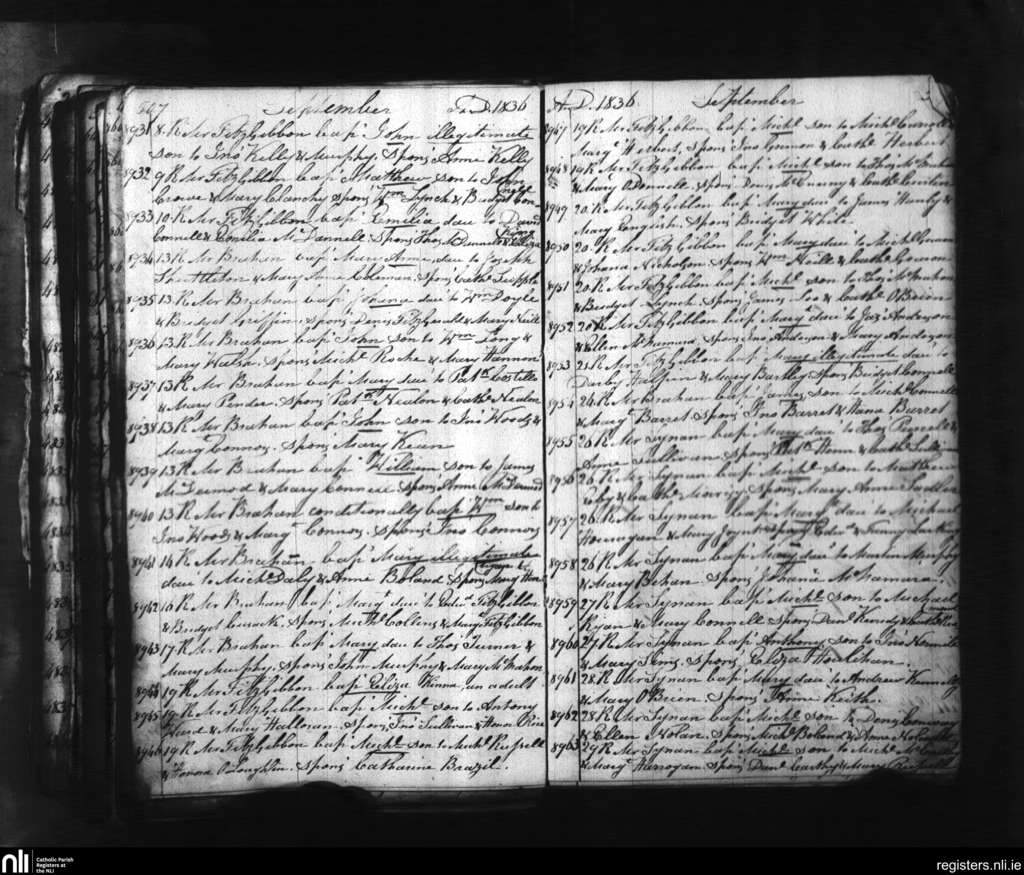 547 September A.D. 1836
8931 8. R. Mr FitzGibbon bap: John illegitimate
son to Jno Kelly & Murphy. Spons Anne Kelly
8932 9 R. Mr FitzGibbon bap: Matthew son to John
Crowe & Mary Clanchy spons Wm Lynch & Bridget Con-
8933 10 R. Mr FitzGibbon bap: Emelia dau: to David
Connell & Emelia McDannell. Spons Thos
8934 13 R. Mr Brahan bap: Mary Anne dau: to Joseph
& Mary Anne Coleman. Spons Cath: Supple
8935 13. R. Mr Brahan bap: Johana dau: to Wm Doyle
& Bridget Griffin. spons Denis FitzGerald & Mary Neill
8936 13. R. Mr Brahan bap: John son to Wm Long &
Mary Walsh. spons Michl Roche & Mary Hannon
8937 13 R. Mr Brahan bap: Mary dau: to Patk Costello
& Mary Pender. Spons Patk Nealon & Cath: Nealon
8938 13. R. Mr Brahan bap: John son to Jno Woods &
Marg: Connors. spons Mary Kean
8939 13 R. Mr Brahan bap: William son to James
McDermod & Mary Connell spons Anne McDermod
8940 13 R. Mr Brahan conditionally bap: Wm son to
Jno Woods & Marg: Connors. Spons Jno Connors
8941 14 R. Mr Brahan bap: Mary illegitimate
dau: to Michl Daly & Anne Boland Spons Mary
8942 16 R. Mr Brahan bap: Margt dau: to Edwd FitzGibbon
& Bridget Cusack. Spons Michl Collens & Mary FitzGibbon
8943 17. R. Mr Brahan bap: Mary dau: to Thos Turner &
Mary Murphy. Spons John Murphy & Mary McMahon
8944 19 R. Mr FitzGibbon bap: Eliza Kinna, an adult
8945 19 R. Mr FitzGibbon bap: Michl son to Antony
Hard & Mary Halloran. Spons Jno Sullivan & Honor Rice
8946 19 R. Mr FitzGibbon bap: Michl son to Michl Russell
& Honora O'Loughlin. Spons Catharine Brazil.
A.D. 1836. September
8947 19 R. Mr FitzGibbon bap: Michl son to Michl
Margt Herbert. spons Jno Gorman & Cathe Herbert
8948 19 R. Mr FitzGibbon bap: Michl son to Thos McMahon
& Mary O'Donnell spons Denis McEnerny & Cathe
8949 20 R. Mr FitzGibbon bap: Mary dau: to James Hanly &
Mary English. Spons Bridget White.
8950 20. R. Mr FitzGibbon bap: Mary dau: to Michl
& Johana Nicholson. Spons Wm Neill & Cathe
8951 20. R. Mr FitzGibbon bap: Michl son to Thos McMahon
& Bridget Lynch. Spons James & Cathe O'Brien
8952 20 R. Mr FitzGibbon bap: Margt dau: to Jas Anderson
& Ellen McNamara. spons Jno Anderson & Mary Anderson
8953 21 R. Mr FitzGibbon bap: Mary illegitimate dau: to
Darby Halpin & Mary Bartley Spons Bridget Connell
8954 24 R. Mr Brahan bap: James son to Michl Connell
& Margt Barret spons Jno Barret & Hana Barret
8955 26 R. Mr Synan bap: Mary dau: to Thos Purcell &
Anne Sullivan spons & Cathe
8956 26 R. Mr Synan bap: Michl son to Matthew
& Cathe Morrisy spons Mary Anne Sadlier
8957 26 R. Mr Synan bap: Mary dau: to Michael
Hourigan & Mary Joynt spons
8958 26 R. Mr Synan bap: Mary dau: to Martin Murphy
& Mary Behan. Spons Johana McNamara.
8959 27 R. Mr Synan bap: Michl son to Michael
Ryan & Mary Connell Spons Danl Kennedy &
8960 27 R. Mr Synan bap: Anthony son to Jno
& Mary Sims. spons Eliza Houlihan.
8961 28. R. Mr Synan bap: Mary dau: to Andrew Kennelly
& Mary O'Brien Spons Anne Keith.
8962 28 R. Mr Synan bap: Michl son to Denis Conway
& Ellen Nolan. Spons Michl Boland & Anne
8963 29 R. Mr Synan bap: Michl son to Michl
& Margt Harrogan. spons Danl Carthy & Mary Russell
nli
Catholic Parish
Registers at
the NLI
registers.nli.ie